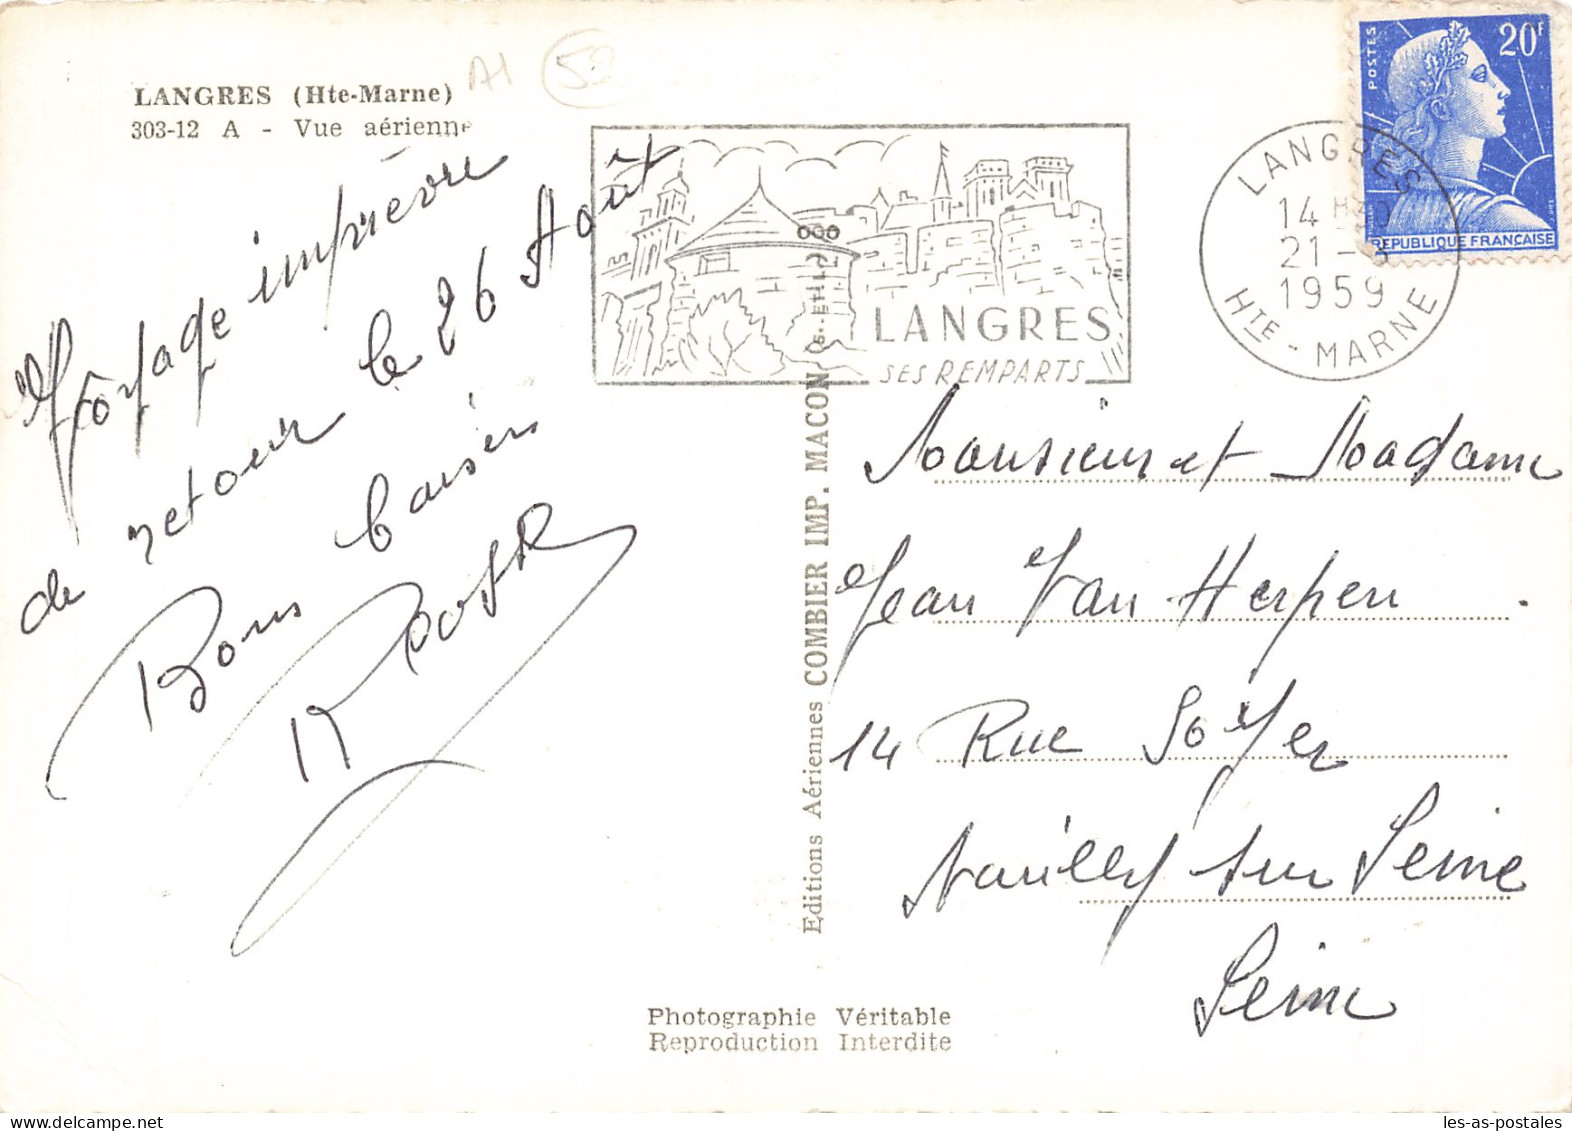 LANGRES (Hte-Marne)
303-12 A - Vue aérienne
A1 52
Voyage imprévu
de retour le 26 Août
Bons baisers
LANGRES
SES REMPARTS
LANGRES
14 H30
21 -
1959
HTE - MARNE
POSTES
20F
REPUBLIQUE FRANÇAISE
Editions Aériennes COMBIER IMP. MACON
Monsieur et Madame
Jean Van Herpen
14 Rue Soyer
Neuilly sur Seine
Seine
Photographie Véritable
Reproduction Interdite
les-as-postales